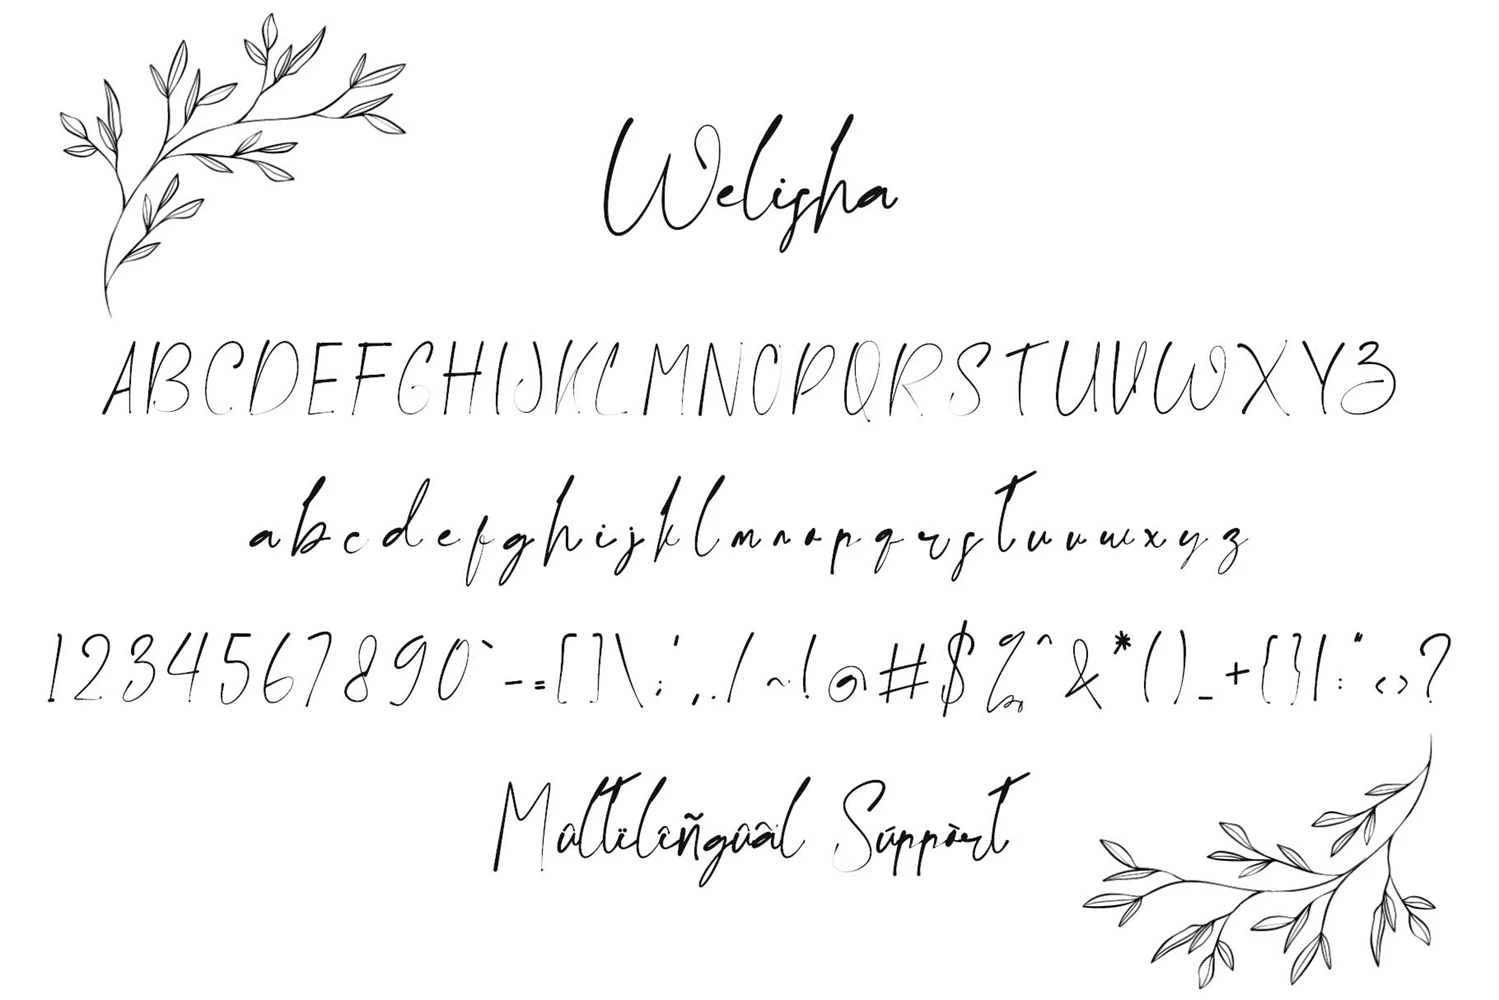 Welisha
ABCDEFGHIJKLMNOPQRSTUVWXYZ
abcdefghijklmnopqrstuvwxyz
1234567890`-=[]\;',./~!@#$%^&*()_+{}|:"<>?
Multilïñgûâl Súppòrt